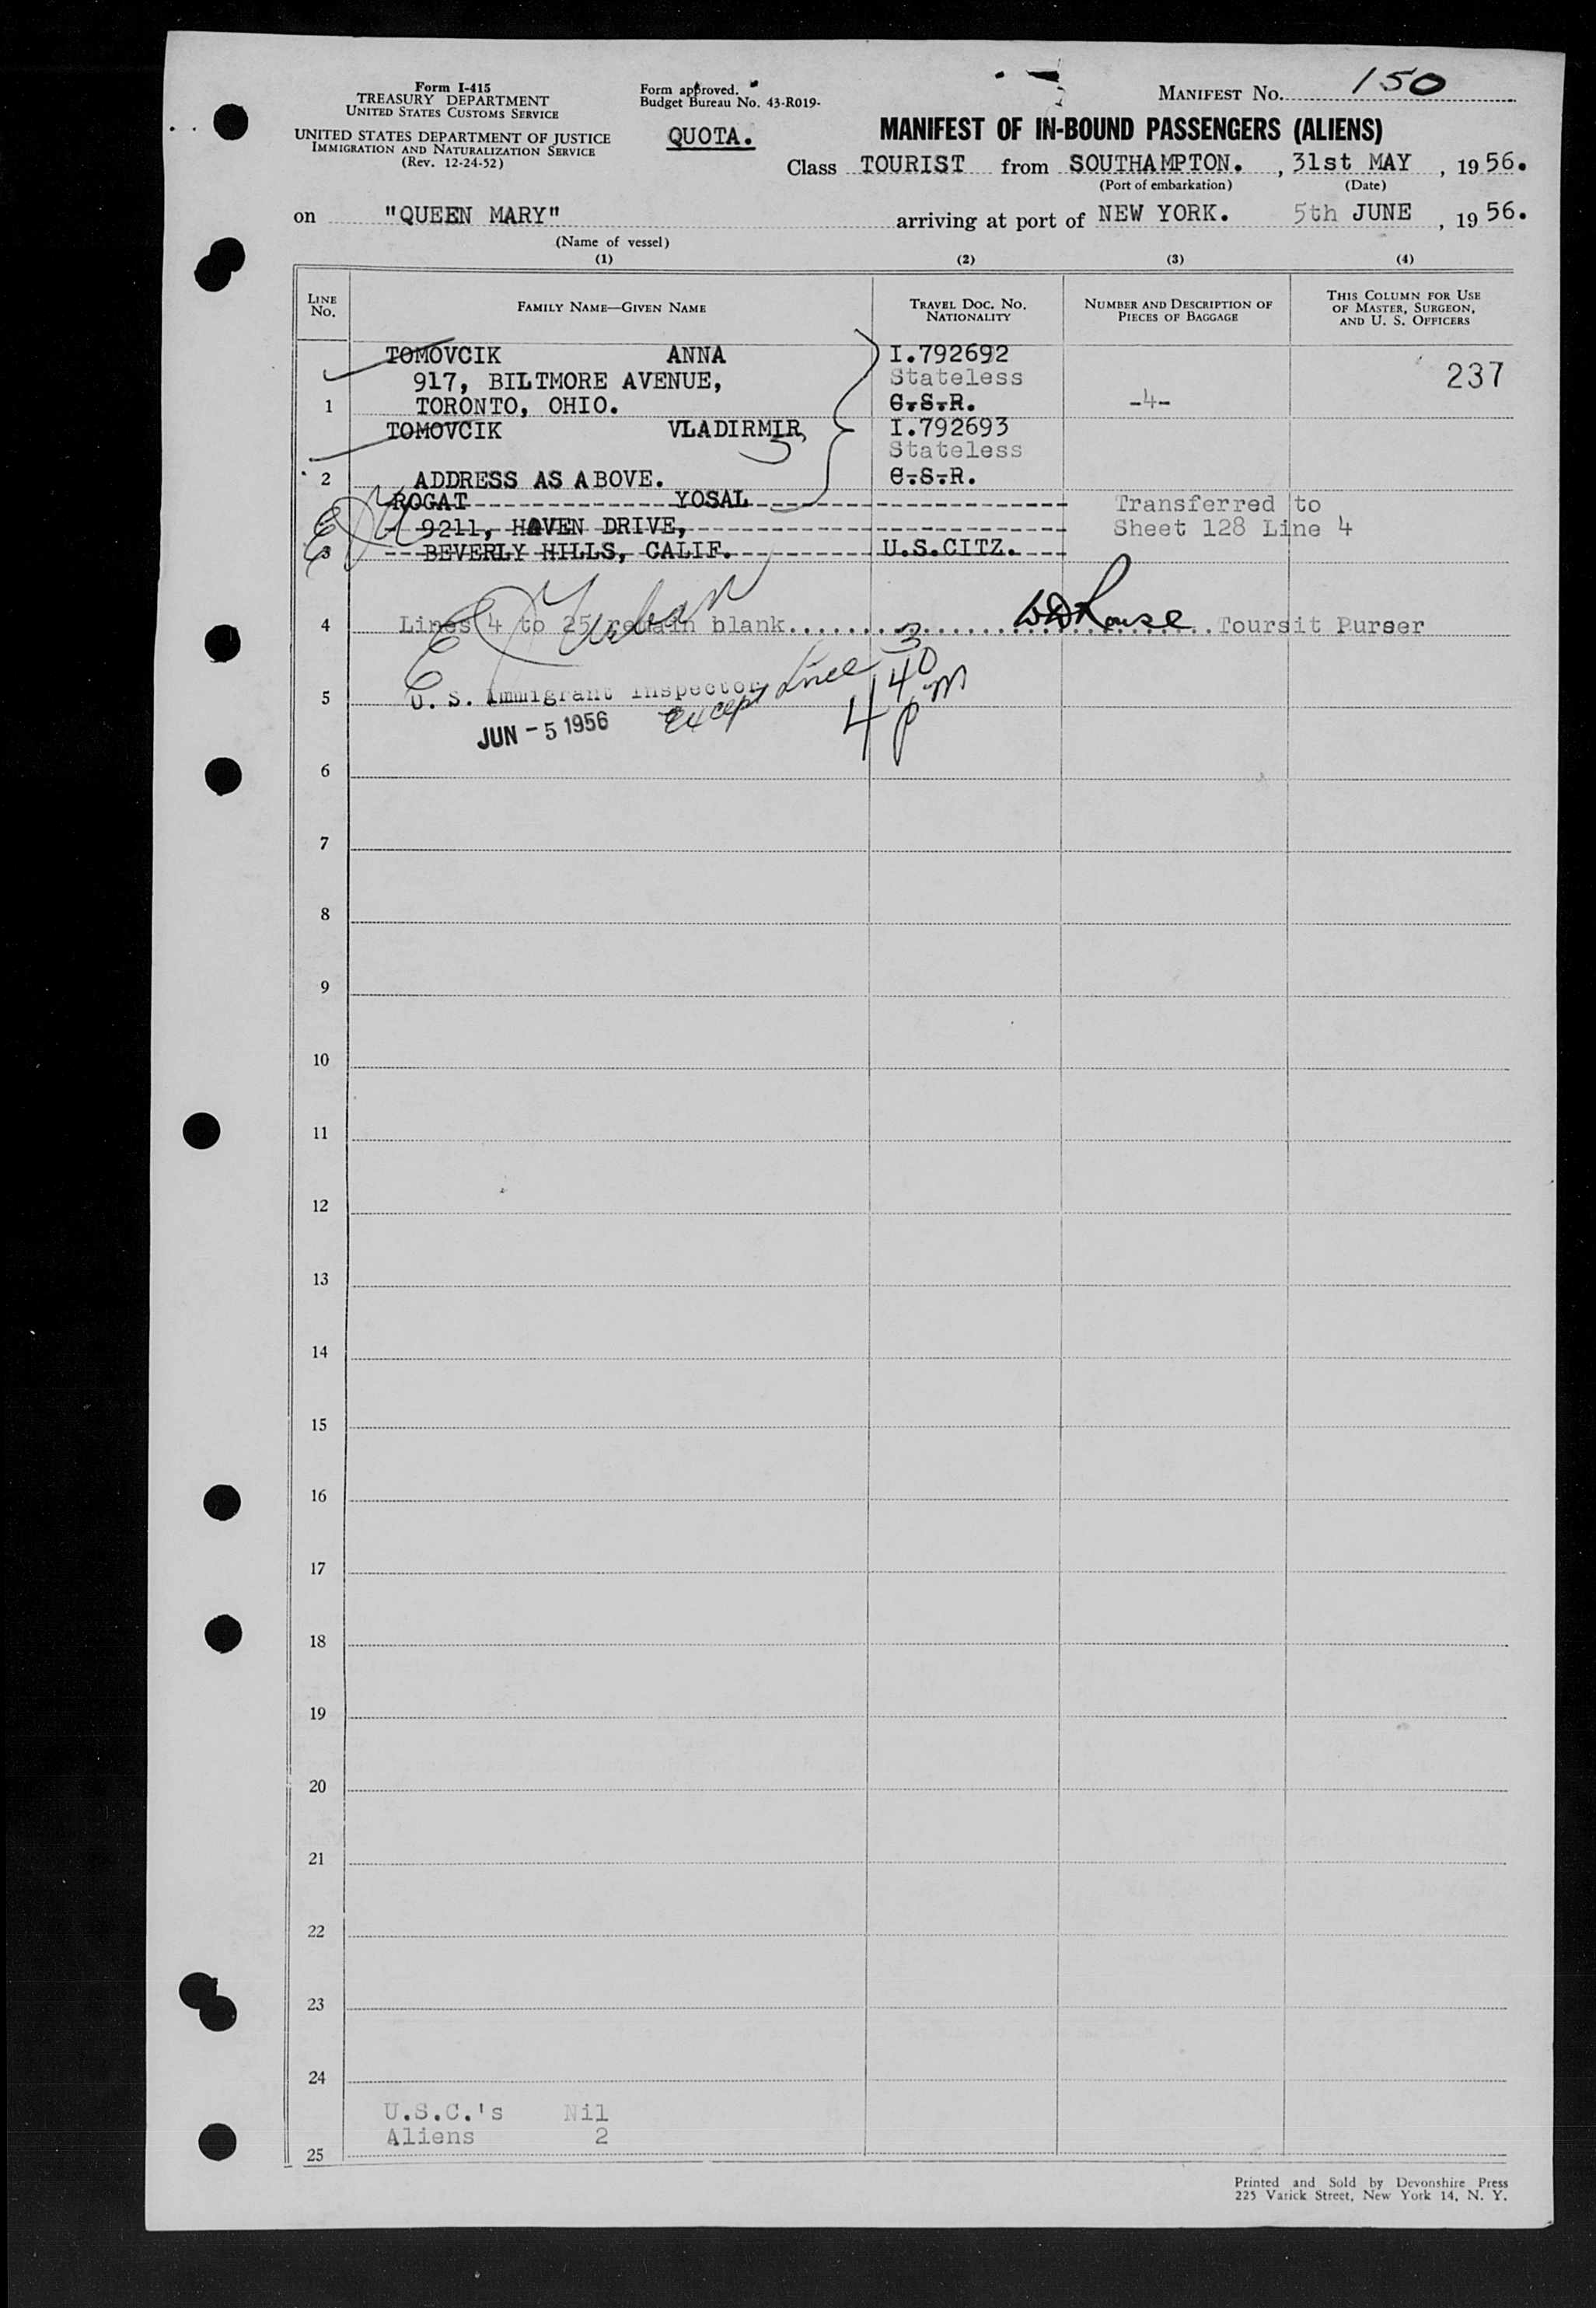 Form I-415
TREASURY DEPARTMENT
UNITED STATES CUSTOMS SERVICE
UNITED STATES DEPARTMENT OF JUSTICE
IMMIGRATION AND NATURALIZATION SERVICE
(Rev. 12-24-52)
Form approved.
Budget Bureau No. 43-R019-
QUOTA.
MANIFEST NO. 150
MANIFEST OF IN-BOUND PASSENGERS (ALIENS)
Class TOURIST from SOUTHAMPTON. , 31st MAY , 19 56.
(Port of embarkation) (Date)
on "QUEEN MARY" arriving at port of NEW YORK. 5th JUNE , 19 56.
(Name of vessel)
(1) (2) (3) (4)
LINE NO. FAMILY NAME—GIVEN NAME TRAVEL DOC. NO. NATIONALITY NUMBER AND DESCRIPTION OF PIECES OF BAGGAGE THIS COLUMN FOR USE OF MASTER, SURGEON, AND U. S. OFFICERS
TOMOVCIK ANNA I.792692
917, BILTMORE AVENUE, Stateless 237
1 TORONTO, OHIO. C.S.R. -4-
TOMOVCIK VLADIRMIR, I.792693
Stateless
2 ADDRESS AS ABOVE. C.S.R.
ROGAT YOSAL Transferred to
9211, HAVEN DRIVE, Sheet 128 Line 4
3 BEVERLY HILLS, CALIF. U.S.CITZ.
4 Lines 4 to 25 remain blank. Toursit Purser
5 U. S. Immigrant Inspector
except Line 3
4 40 pm
JUN - 5 1956
6
7
8
9
10
11
12
13
14
15
16
17
18
19
20
21
22
23
24
U.S.C.'s Nil
Aliens 2
25
Printed and Sold by Devonshire Press
225 Varick Street, New York 14, N. Y.